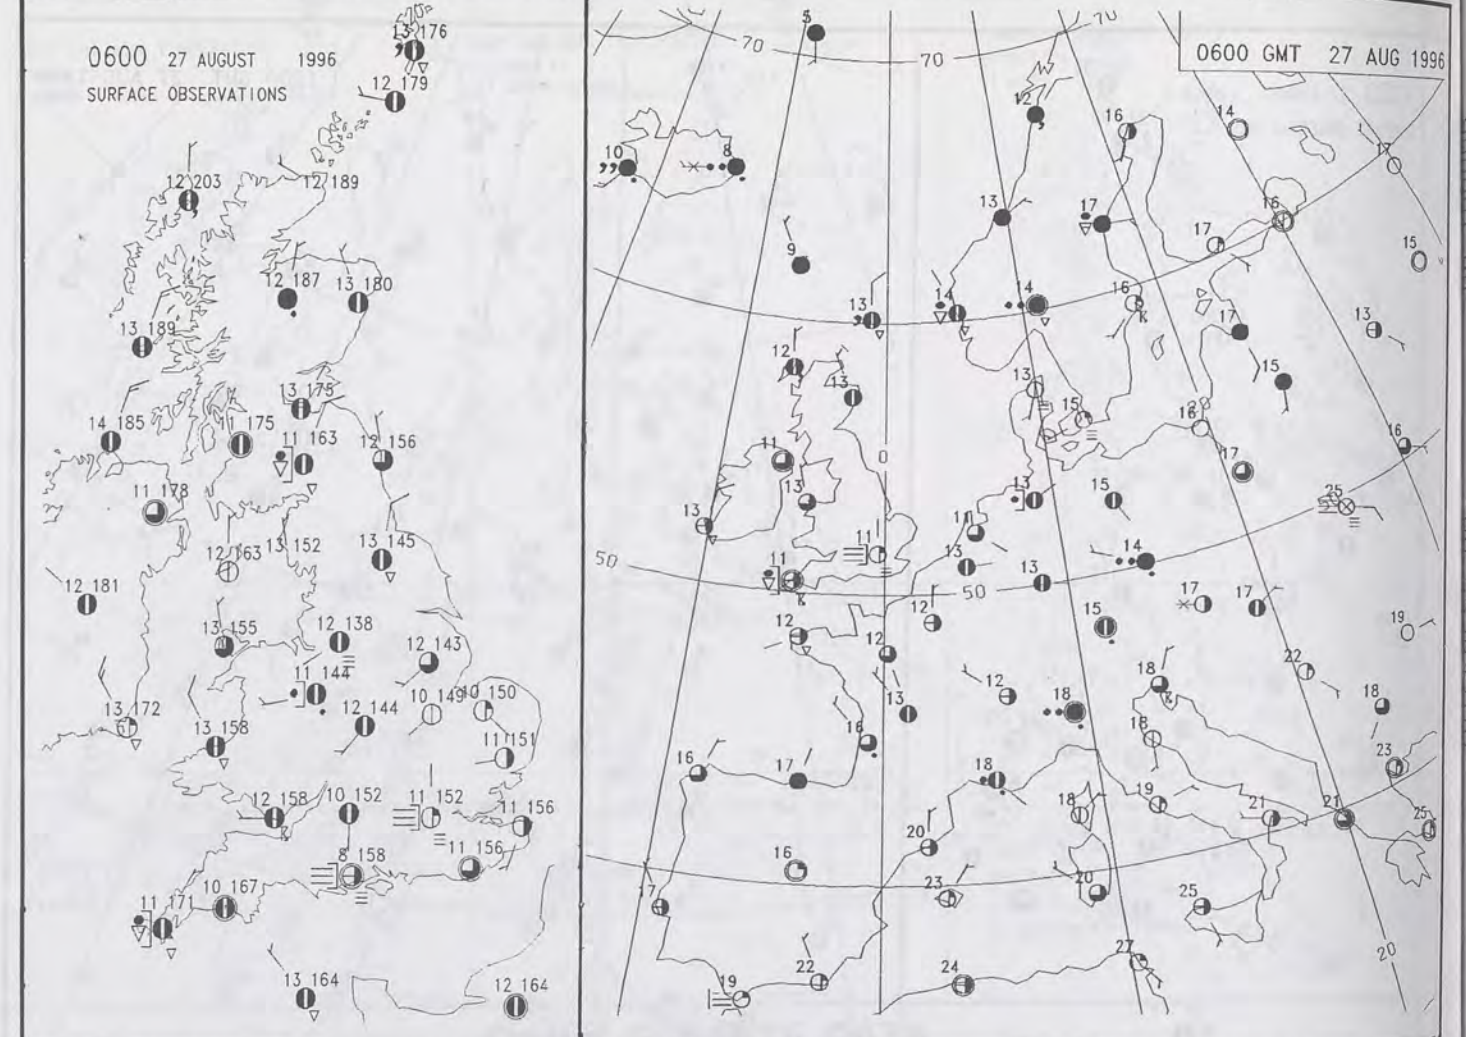 0600 27 AUGUST 1996
SURFACE OBSERVATIONS
13 176
12 179
12 203
12 189
12 187
13 180
13 189
13 175
14 185
11 175
11 163
12 156
11 178
12 163
13 152
13 145
12 181
13 155
12 138
12 143
11 144
13 172
12 144
10 149
10 150
13 158
11 151
12 158
10 152
11 152
11 156
8 158
11 156
11 171
10 167
13 164
12 164
0600 GMT 27 AUG 1996
70
70
70
12
16
14
17
10
8
13
17
16
17
15
9
13
14
14
16
17
13
12
13
13
15
15
16
16
11
0
17
13
13
13
15
25
11
11
11
13
14
50
50
13
17
17
12
12
15
19
12
22
12
18
18
18
13
16
16
17
18
18
23
18
19
21
21
25
20
16
17
23
20
25
22
24
27
19
20